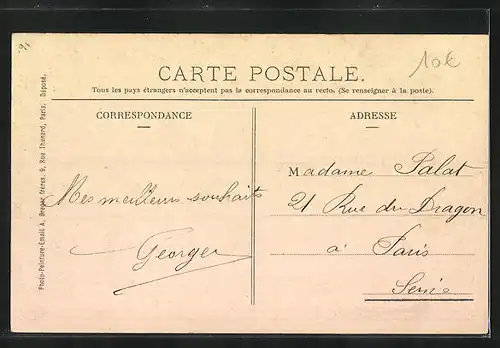 10€
CARTE POSTALE.
Tous les pays étrangers n'acceptent pas la correspondance au recto. (Se renseigner à la poste).
CORRESPONDANCE
Mes meilleurs souhaits
Georges
ADRESSE
Madame Palat
21 Rue du Dragon
à Paris
Seine
Photo-Peinture-Email A. Breger frères, 9, Rue Thénard, Paris, Déposé.